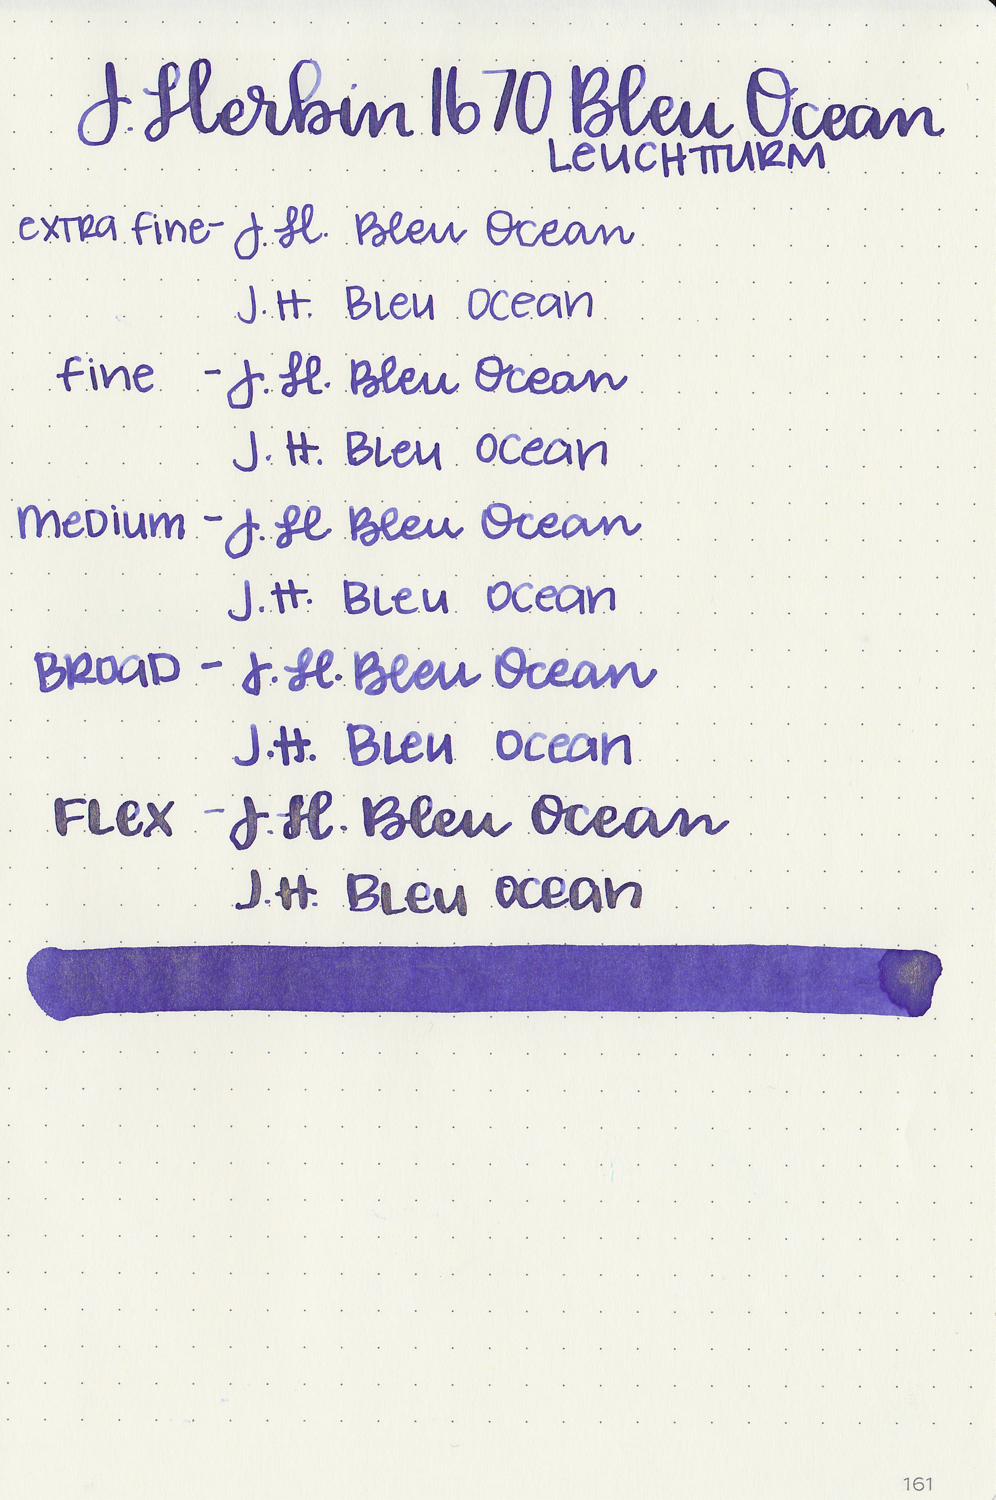 J. Herbin 1670 Bleu Ocean
LEUCHTTURM
extra fine- J. H. Bleu Ocean
J. H. Bleu Ocean
fine - J. H. Bleu Ocean
J. H. Bleu Ocean
Medium - J. H Bleu Ocean
J. H. Bleu Ocean
BROAD - J. H. Bleu Ocean
J. H. Bleu Ocean
FLEX - J. H. Bleu Ocean
J. H. Bleu Ocean
161